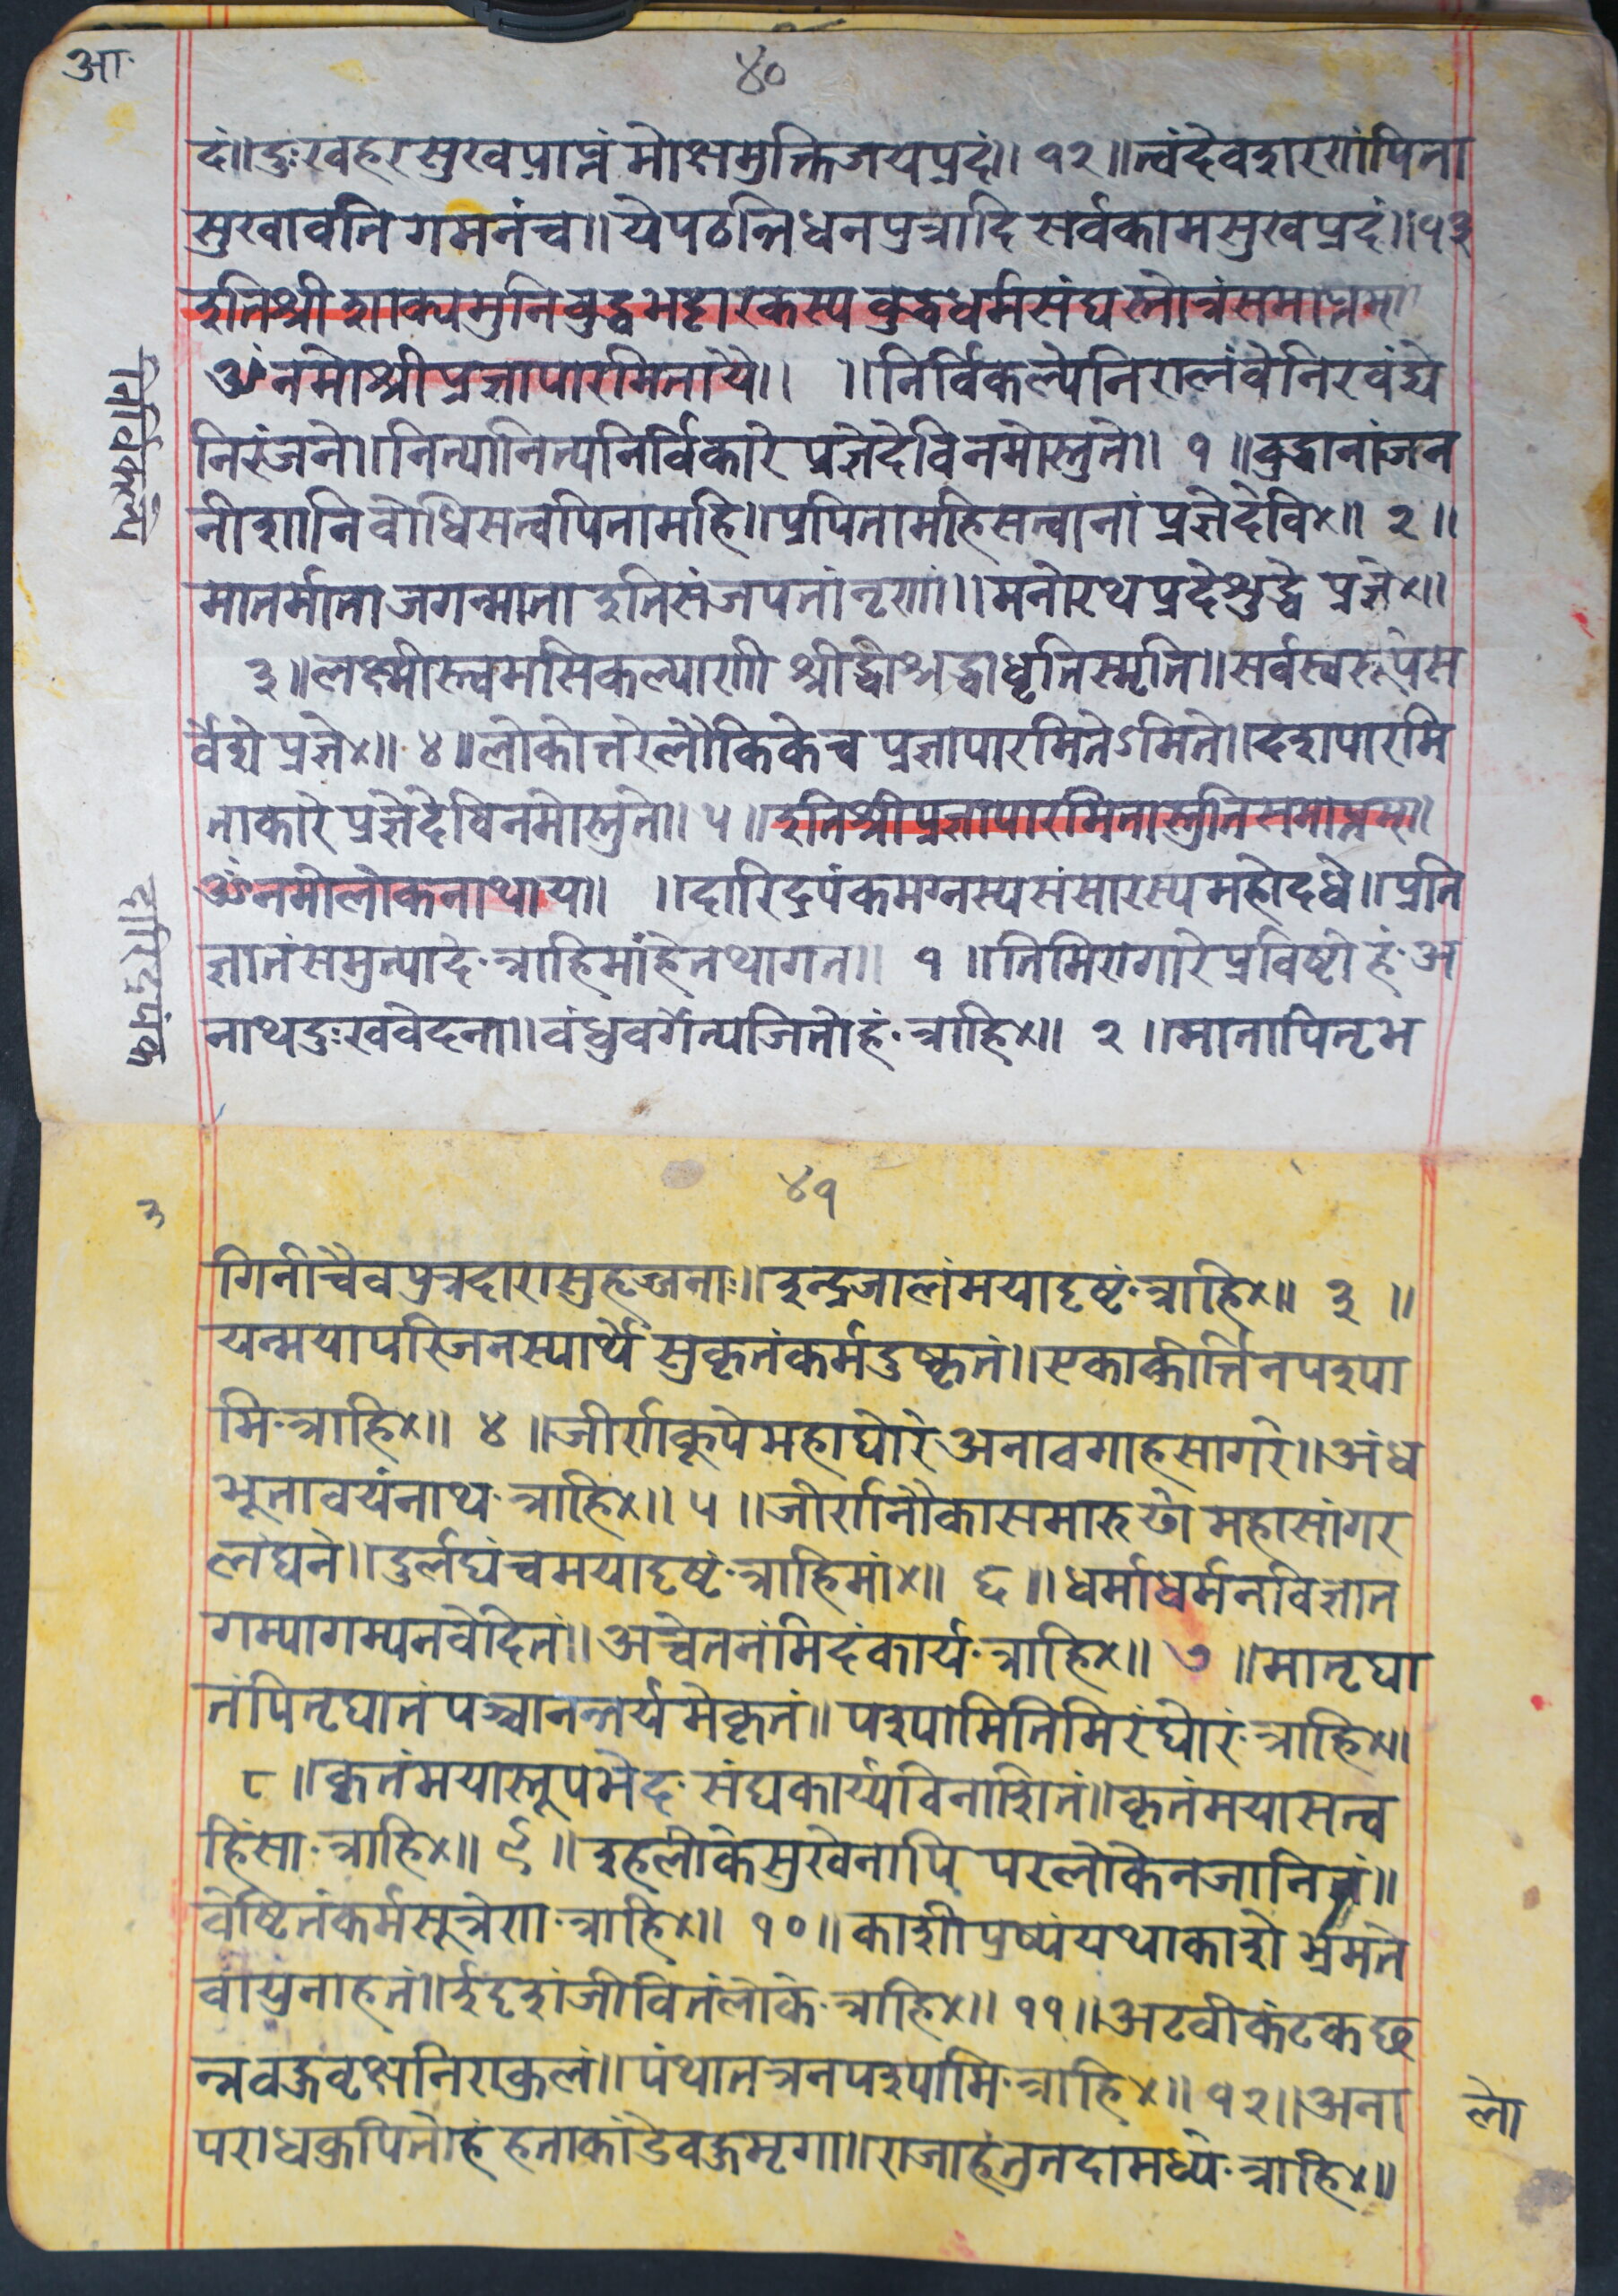 आ.
४०
दं॥दुःखहरसुखप्राप्तं मोक्षमुक्तिजयप्रदं॥ १२ ॥त्वंदेवदारणांपिता
सुखावति गमनंच॥येपठन्तिधनपुत्रादि सर्वकामसुखप्रदं॥१३
इतिश्री शाक्यमुनिबुद्धभट्टारकस्य बुद्धधर्मसंघस्तोत्रंसमाप्तम्॥
ॐनमोश्रीप्रज्ञापारमितायै॥ ॥निर्विकल्पेनिरालंवेनिरवंद्ये
निरंजने॥नित्यानित्यनिर्विकारे प्रज्ञेदेविनमोस्तुते॥ १ ॥बुद्धानांजन
नीशानिवोधिसत्वपितामहि॥प्रपितामहिसत्वानां प्रज्ञेदेवि×॥ २ ॥
मातर्माताजगन्माता इतिसंजपतांनृणां॥मनोरथप्रदेशुद्धे प्रज्ञे×॥
३ ॥लक्ष्मीस्त्वमसिकल्याणी श्रीर्द्धीश्रद्धाधृतिस्मृति॥सर्वस्वरूपेस
र्वेद्ये प्रज्ञे×॥ ४ ॥लोकोत्तरेलौकिकेच प्रज्ञापारमितेऽमिते॥दशपारमि
ताकारे प्रज्ञेदेविनमोस्तुते॥ ५ ॥इतिश्रीप्रज्ञापारमितास्तुतिसमाप्तम्॥
ॐनमोलोकनाथाय॥ ॥दारिद्रपंकमग्नस्यसंसारस्यमहोदधे॥प्रति
ज्ञानंसमुत्पादे·त्राहिमांहेतथागत॥ १ ॥तिमिरागारेप्रविष्टोहं·अ
नाथदुःखवेदना॥वंधुवर्गेत्यजितोहं·त्राहि×॥ २ ॥मातापितृभ
निर्विकल्पे
दारिद्रपंक
४१
३
गिनीचैवपुत्रदारासुहृज्जनाः॥इन्द्रजालंमयादृष्टं·त्राहि×॥ ३ ॥
यन्मयापरिजनस्यार्थे सुकृतंकर्मदुष्कृतं॥एकाकीर्त्तिनपश्या
मि·त्राहि×॥ ४ ॥जीर्णकूपेमहाघोरे·अनावगाहसागरे॥अंध
भूतावयंनाथ·त्राहि×॥ ५ ॥जीर्णनौकासमारुढो महासांगर
लंघने॥दुर्लघंच्चमयादृष्टं·त्राहिमां×॥ ६ ॥धर्माधर्मनविज्ञान
गम्यागम्यनवेदितं॥अच्चेतनंमिदंकार्य·त्राहि×॥ ७ ॥मातृघा
तंपितृघातं पञ्चानन्तर्यमेकृतं॥पश्यामितिमिरंघोरं·त्राहि×॥
८ ॥कृतंमयास्तूपभेद·संघकार्य्यविनाशितं॥कृतंमयासत्व
हिंसा·त्राहि×॥ ९ ॥इहलोकेसुखेनापि परलोकेनजानितं॥
वेष्टितंकर्मसूत्रेण·त्राहि×॥ १० ॥काशीपुष्पंयथाकाशे भ्रमते
वायुनाहतं॥ईदृशंजीवितंलोके·त्राहि×॥ ११॥अटवीकंटकछ
न्नवज्रवृक्षनिराकुलं॥पंथातत्रनपश्यामि·त्राहि×॥ १२॥अना
लो
पराधकुपितोहं हताकांडेवज्रमृगा॥राजाहंतुतदामध्ये·त्राहि×॥